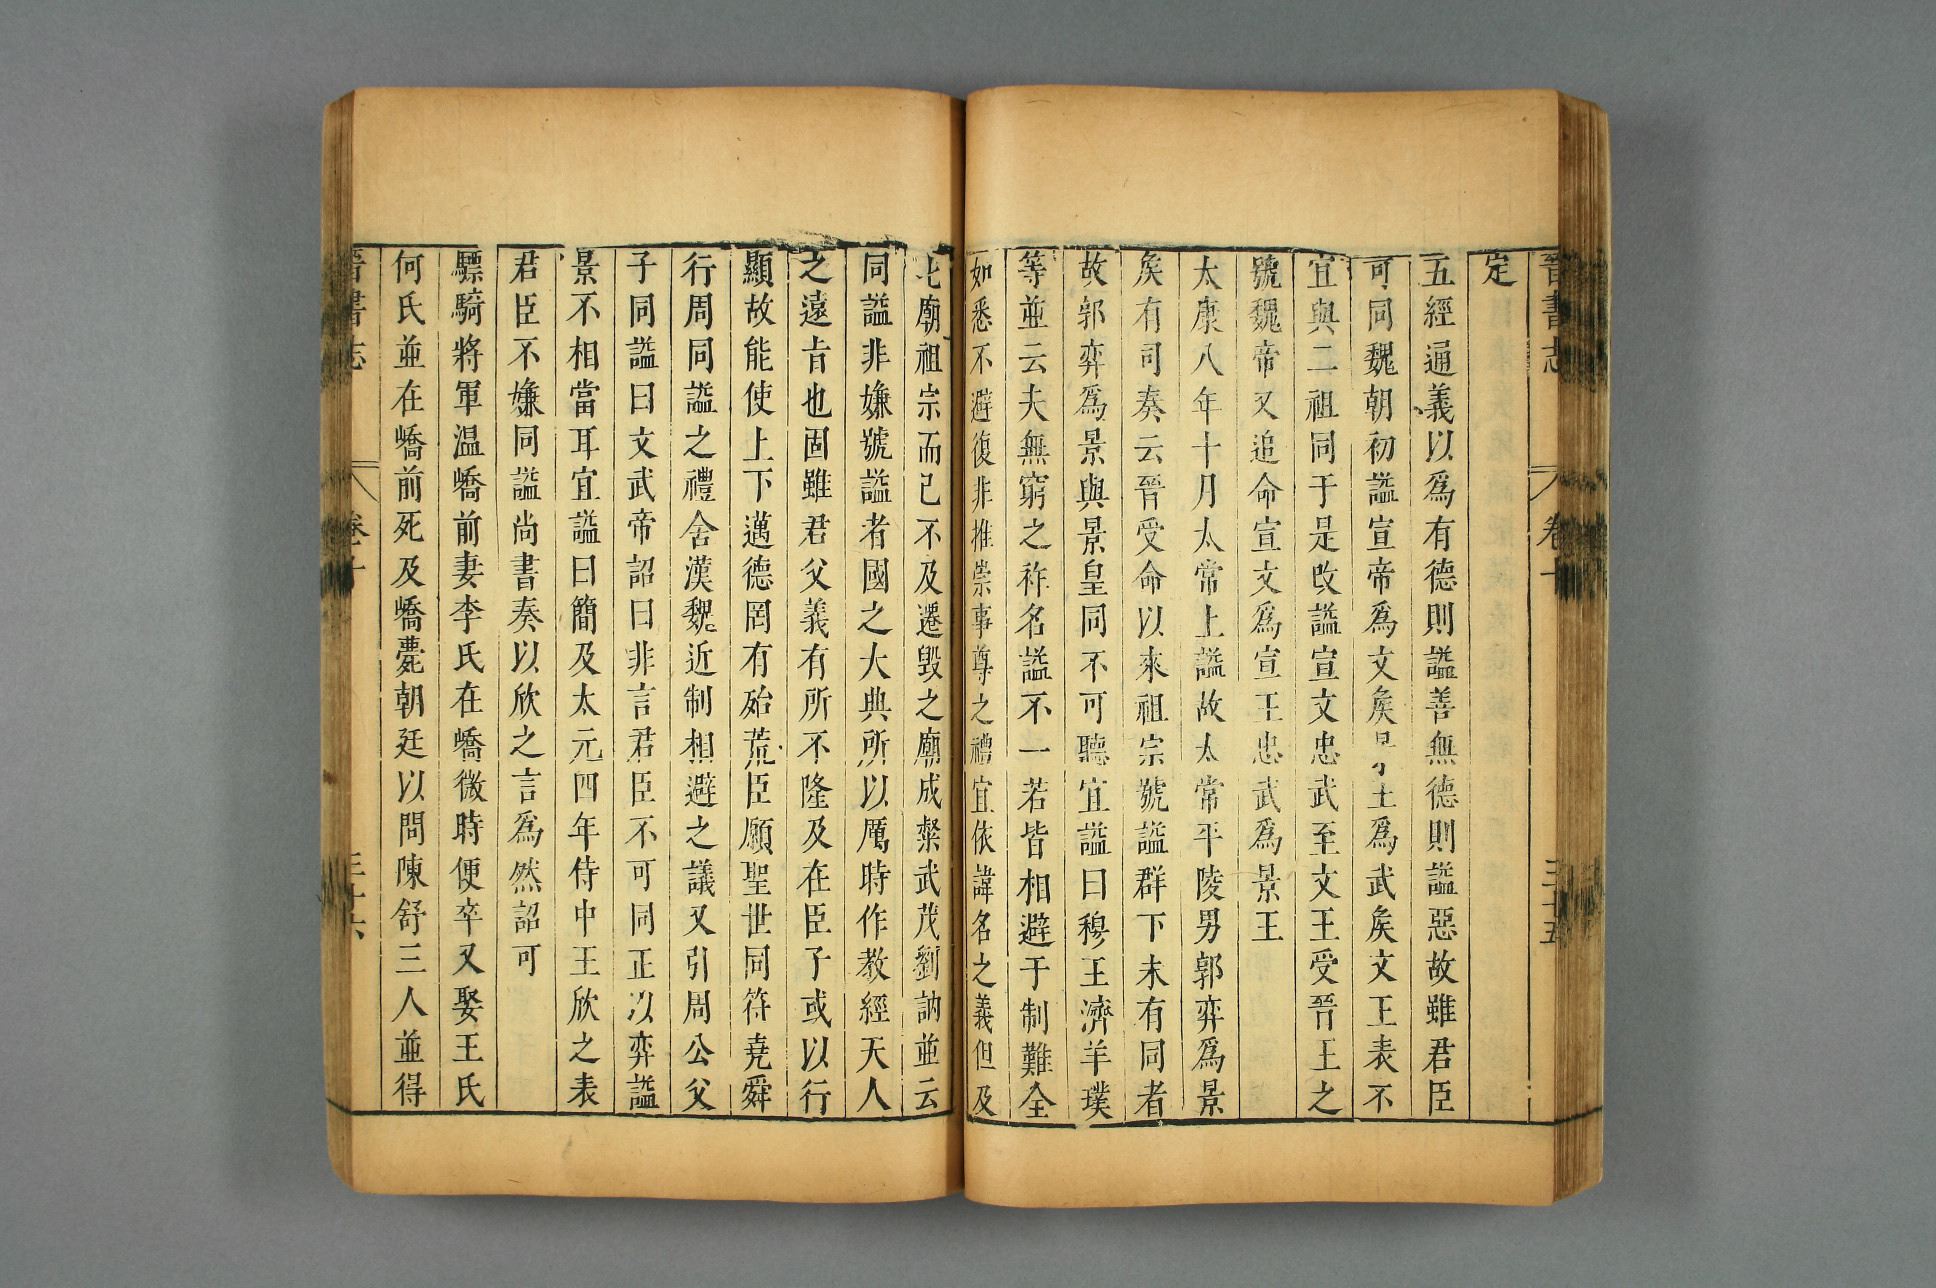 晉書志 卷十 三十五
定
五經通義以爲有德則謚善無德則謚惡故雖君臣
可同魏朝初謚宣帝爲文矦王爲武矦文王表不
宜與二祖同于是改謚宣文忠武至文王受晉王之
號魏帝又追命宣文爲宣王忠武爲景王
太康八年十月太常上謚故太常平陵男郭弈爲景
矦有司奏云晉受命以來祖宗號謚群下未有同者
故郭弈爲景與景皇同不可聽宜謚曰穆王濟羊璞
等並云夫無窮之祚名謚不一若皆相避于制難全
如悉不避復非推崇事尊之禮宜依諱名之義但及
七廟祖宗而已不及遷毀之廟成粲武茂劉訥並云
同謚非嫌號謚者國之大典所以厲時作教經天人
之遠旨也固雖君父義有所不隆及在臣子或以行
顯故能使上下邁德罔有殆荒臣願聖世同符堯舜
行周同謚之禮舍漢魏近制相避之議又引周公父
子同謚曰文武帝詔曰非言君臣不可同正以弈謚
景不相當耳宜謚曰簡及太元四年侍中王欣之表
君臣不嫌同謚尚書奏以欣之言爲然詔可
驃騎將軍温嶠前妻李氏在嶠微時便卒又娶王氏
何氏並在嶠前死及嶠薨朝廷以問陳舒三人並得
晉書志 卷十 三十六